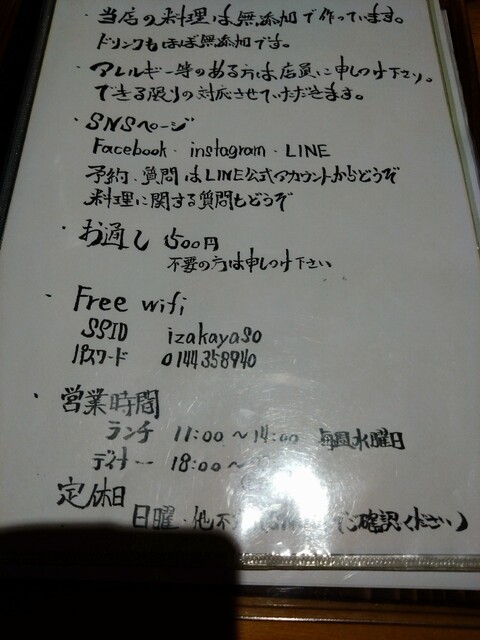 ・当店の料理は無添加で作っています。
ドリンクもほぼ無添加です。
・アレルギー等のある方は店員に申しつけ下さい。
できる限りの対応させていただきます。
・SNSページ
Facebook・instagram・LINE
予約、質問はLINE公式アカウントからどうぞ
料理に関する質問もどうぞ
・お通し 500円
不要の方は申しつけ下さい
・Free wifi
SSID izakayaso
パスワード 0144358940
・営業時間
ランチ 11:00～14:00 毎週水曜日
ディナー 18:00～
定休日
日曜・他不 ご確認ください)